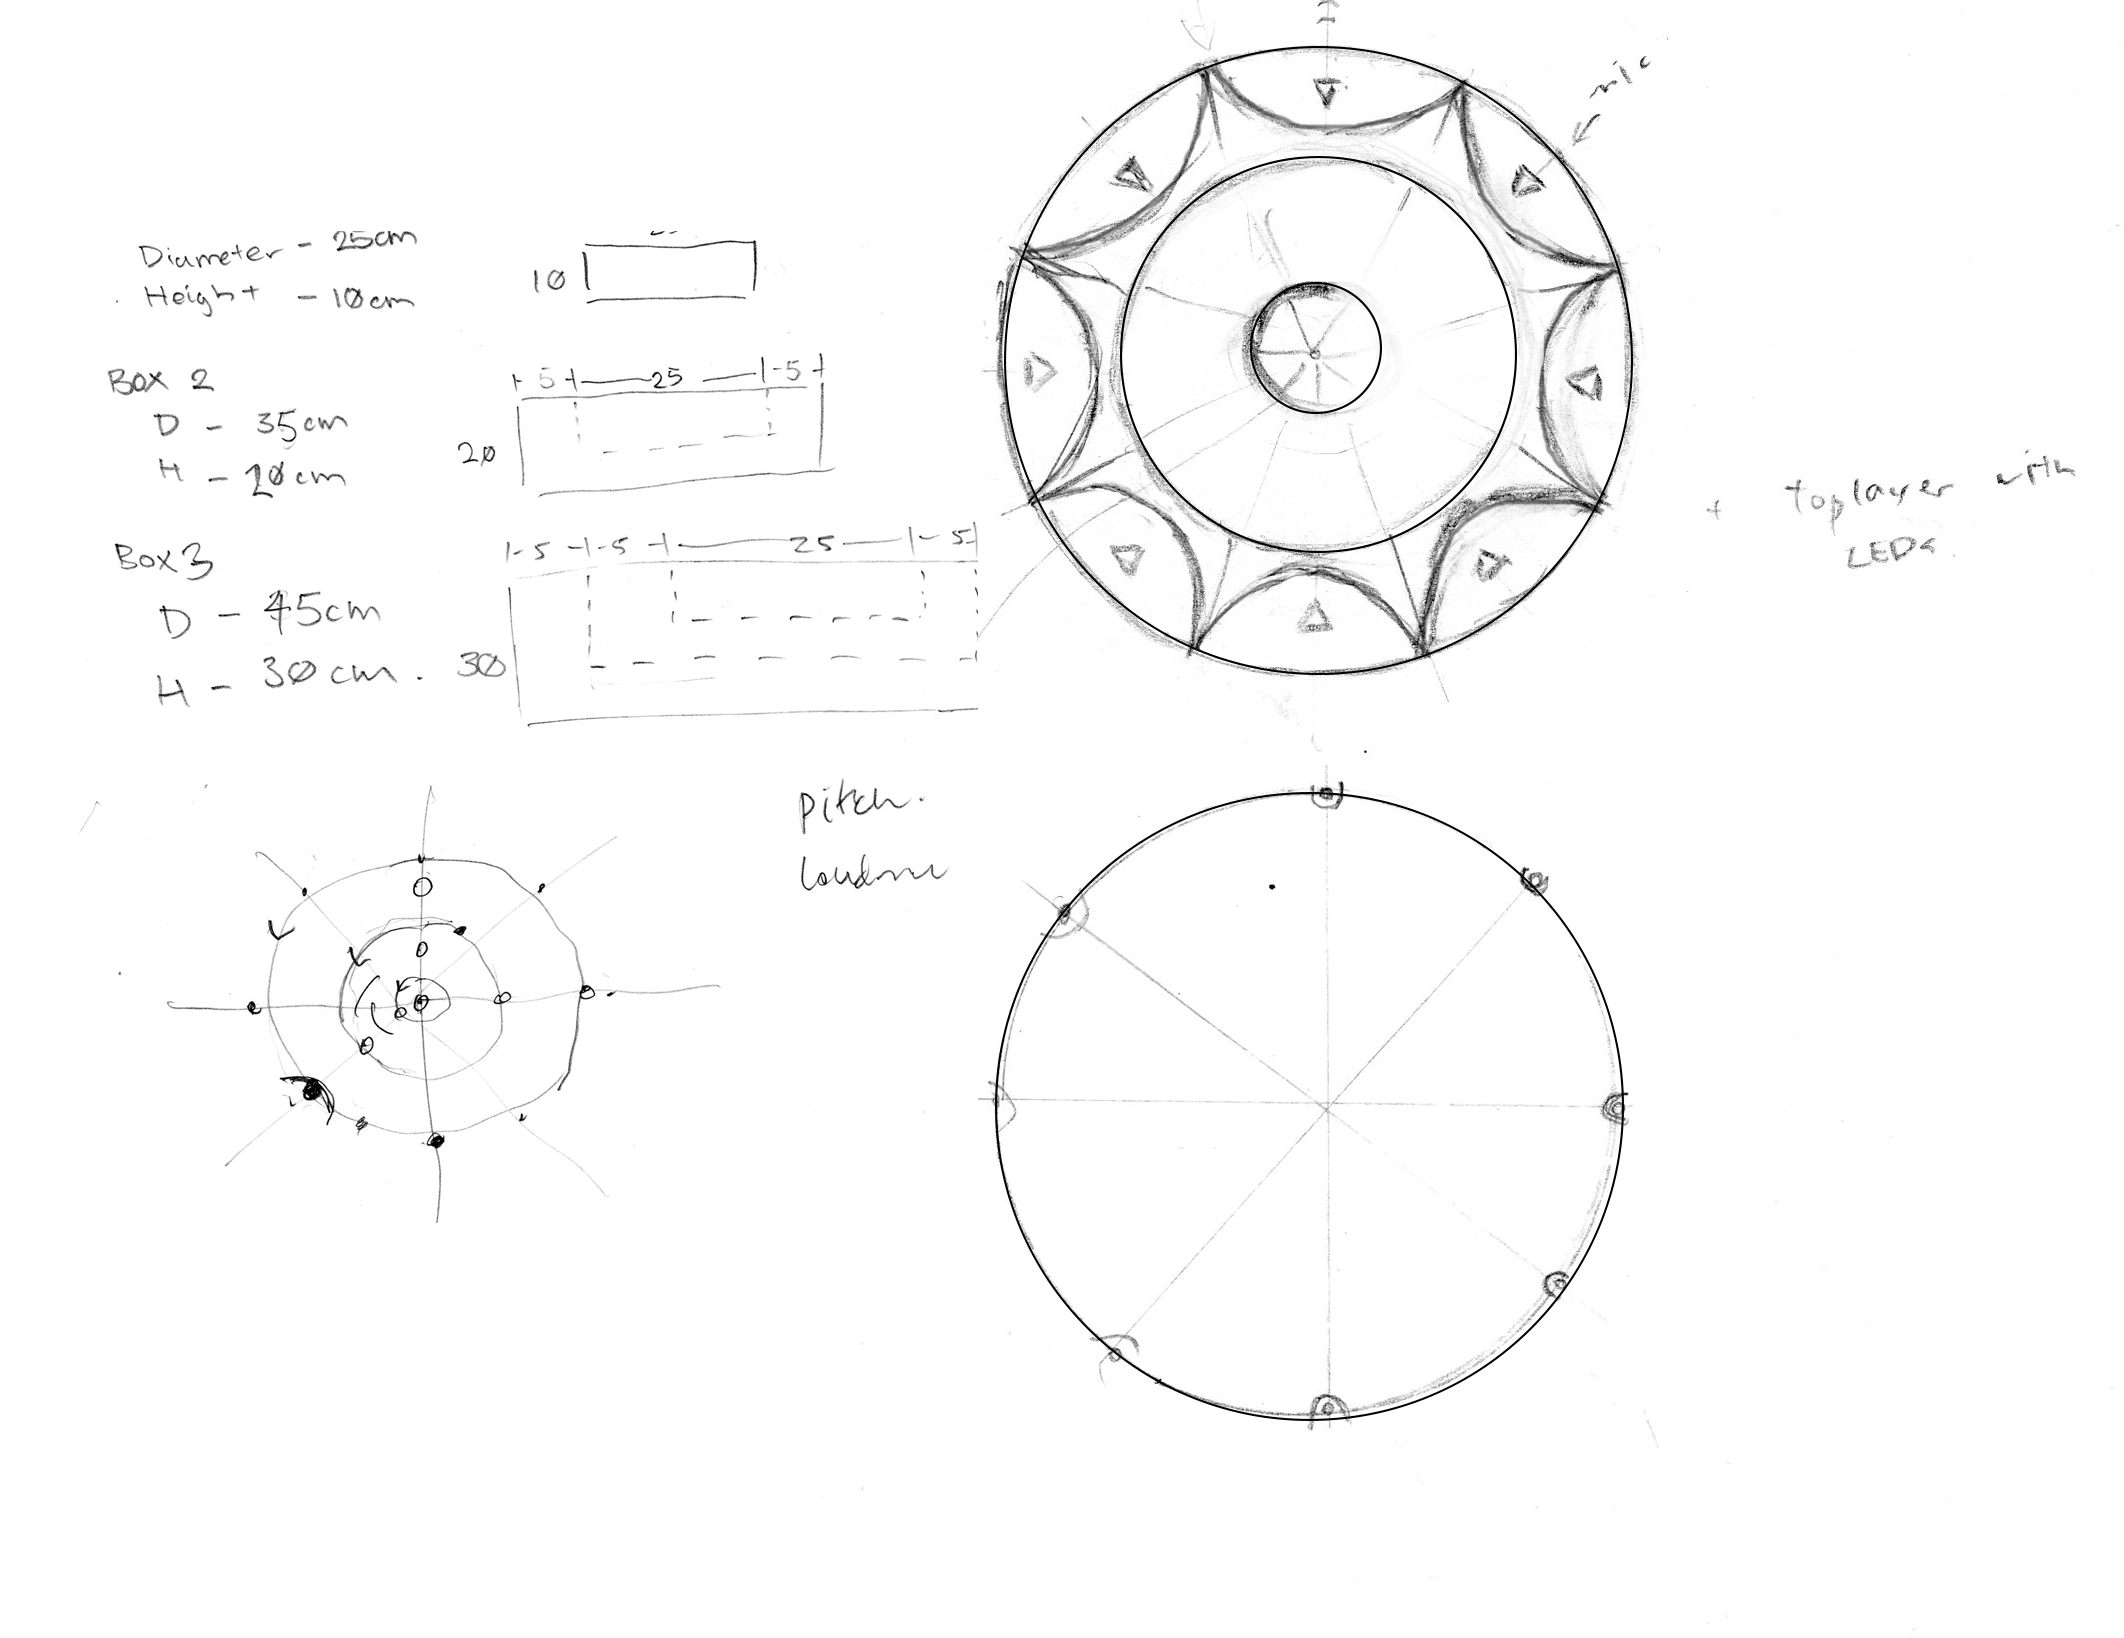 Diameter - 25cm
Height - 10cm
10
Box 2
D - 35cm
H - 20cm
5 25 5
20
Box 3
D - 45cm
H - 30cm.
5 5 25 5
30
mic
+ toplayer with
LEDs.
Pitch.